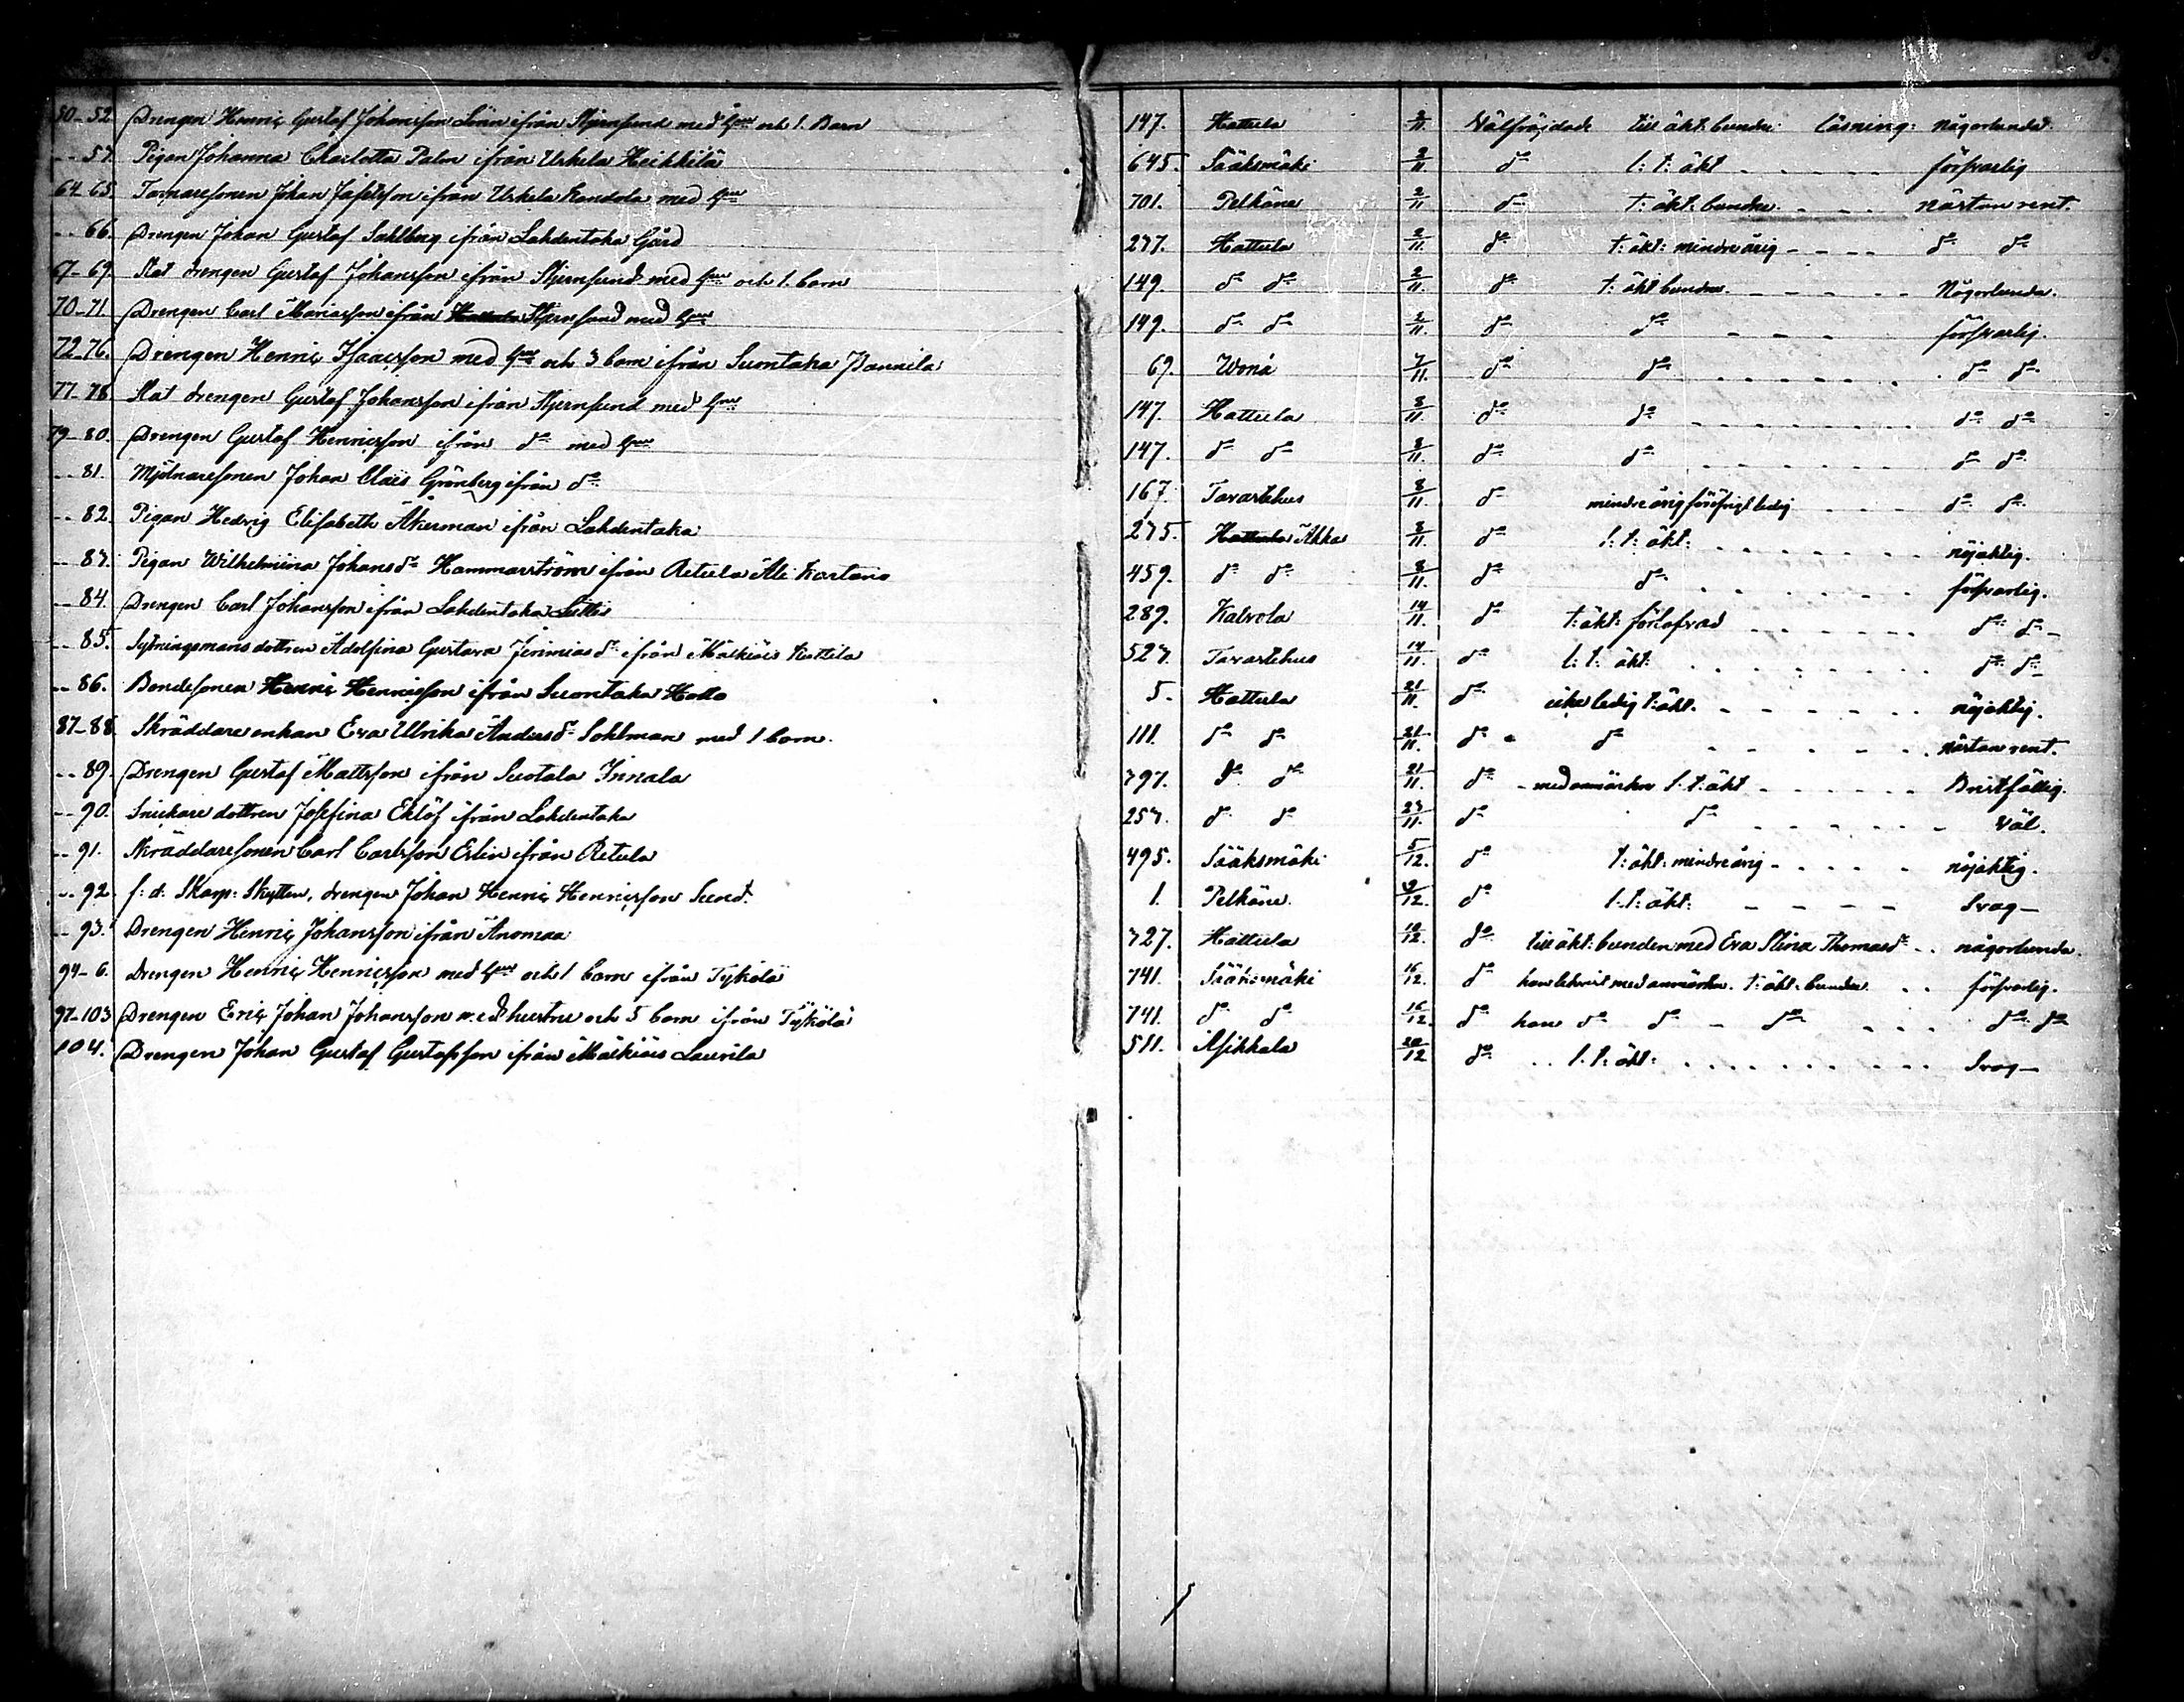 50-52 Drengen Henric Gustaf Johansson ifrån Stjernsund med hru och 1. Barn 147. Hattula 2/11. Wälfräjdade till äkt: bunden: Läsning: någorlunda.
-- 53. Pigan Johanna Charlotta Palm ifrån Uskela Heikkilä 645. Sääksmäki 2/11. do l: t: äkt - - - - - försvarlig
64-65. Johan ifrån Uskela med hru 701. Pelkäne 2/11 do t: äkt: bunden. - - - - nästan rent.
-- 66. Drengen Johan Gustaf Sahlberg ifrån Lahdentaka Gård 277. Hattula 2/11. do t: äkt: mindreårig - - - - do do
67-69. Stat drengen Gustaf Johansson ifrån Stjernsund med hru och 1. barn 149. do do 2/11. do t: äkt bunden. - - - - - Någorlunda.
70-71 Drengen Carl Mariasson ifrån Hattula Stjernsund med hru 149. do do 2/11. do do - - - - försvarlig.
72-76. Drengen Henric Isaacsson med hru och 3 barn ifrån Suontaka Pannila 69. Wonå 7/11. do do - - - - - do do
77-78 Stat drengen Gustaf Johansson ifrån Stjernsund med hru 147. Hattula 8/11. do do - - - - - do do
79-80. Drengen Gustaf Henricsson ifrån do med hru 147. do do 8/11. do do - - - - - do do
-- 81. Mjölnaresonen Johan Claës Grönberg ifrån do 167. Tavastehus 8/11. do mindreårig föröfrigt ledig - - - do do
-- 82. Pigan Hedvig Elisabeth Åkerman ifrån Lahdentaka 275. Hattula Akka 8/11. do l: t: äkt: - - - - - nöjaktig.
-- 83. Pigan Wilhelmina Johansdr Hammarström ifrån Retula Ali Kartano 459. do do 8/11. do do - - - - - försvarlig.
-- 84. Drengen Carl Johansson ifrån Lahdentaka 289. Kalvola 14/11. do t: äkt: förlofvad - - - - - do do
-- 85. Sytningsmans dottren Adolfina Gustava Jerimiasdr ifrån Mälkiäis 527. Tavastehus 14/11. do l: t: äkt: - - - - - do do
-- 86. Bondesonen Henric Henricsson ifrån Suontaka Hollo 5. Hattula 21/11. do icke ledig t: äkt. - - - - - nöjaktig.
87-88. Skräddare enkan Eva Ullrika Andersdr Sohlman med 1 barn. 111. do do 21/11. do do - - - - nästan rent.
-- 89. Drengen Gustaf Mattsson ifrån Suotala Innala 797. do do 21/11. do - med anmärkn l: t: äkt - - - - - Bristfällig.
-- 90. Snickare dottren Josefina Eklöf ifrån Lahdentaka 257. do do 23/11. do do - - - - - Wäl.
-- 91. Skräddaresonen Carl Carlsson Erlin ifrån Retula 495. Sääksmäki 5/12. do t: äkt: mindreårig - - - - - nöjaktig.
-- 92. f: d: Skarp: Skytten, drengen Johan Henric Henricsson Sund. 1. Pelkäne. 9/12. do l: t: äkt: - - - - Svag -
-- 93. Drengen Henric Johansson ifrån Anomaa 727. Hattula 10/12. do till äkt: bunden med Eva Stina Thomasdr - - någorlunda.
94-6. Drengen Henric Henricsson med hru och 1 barn ifrån Tykölä 741. Sääksmäki 16/12. do med anmärkn. t: äkt: bunden. - - försvarlig.
97-103 Drengen Eric Johan Johansson med hustru och 5 barn ifrån Tykölä 741. do do 16/12. do do do - do - - - do do
104. Drengen Johan Gustaf Gustafsson ifrån Mälkiäis Laurila 511. Asikkala 20/12 do - - l: t: äkt: - - - - - - Svag -